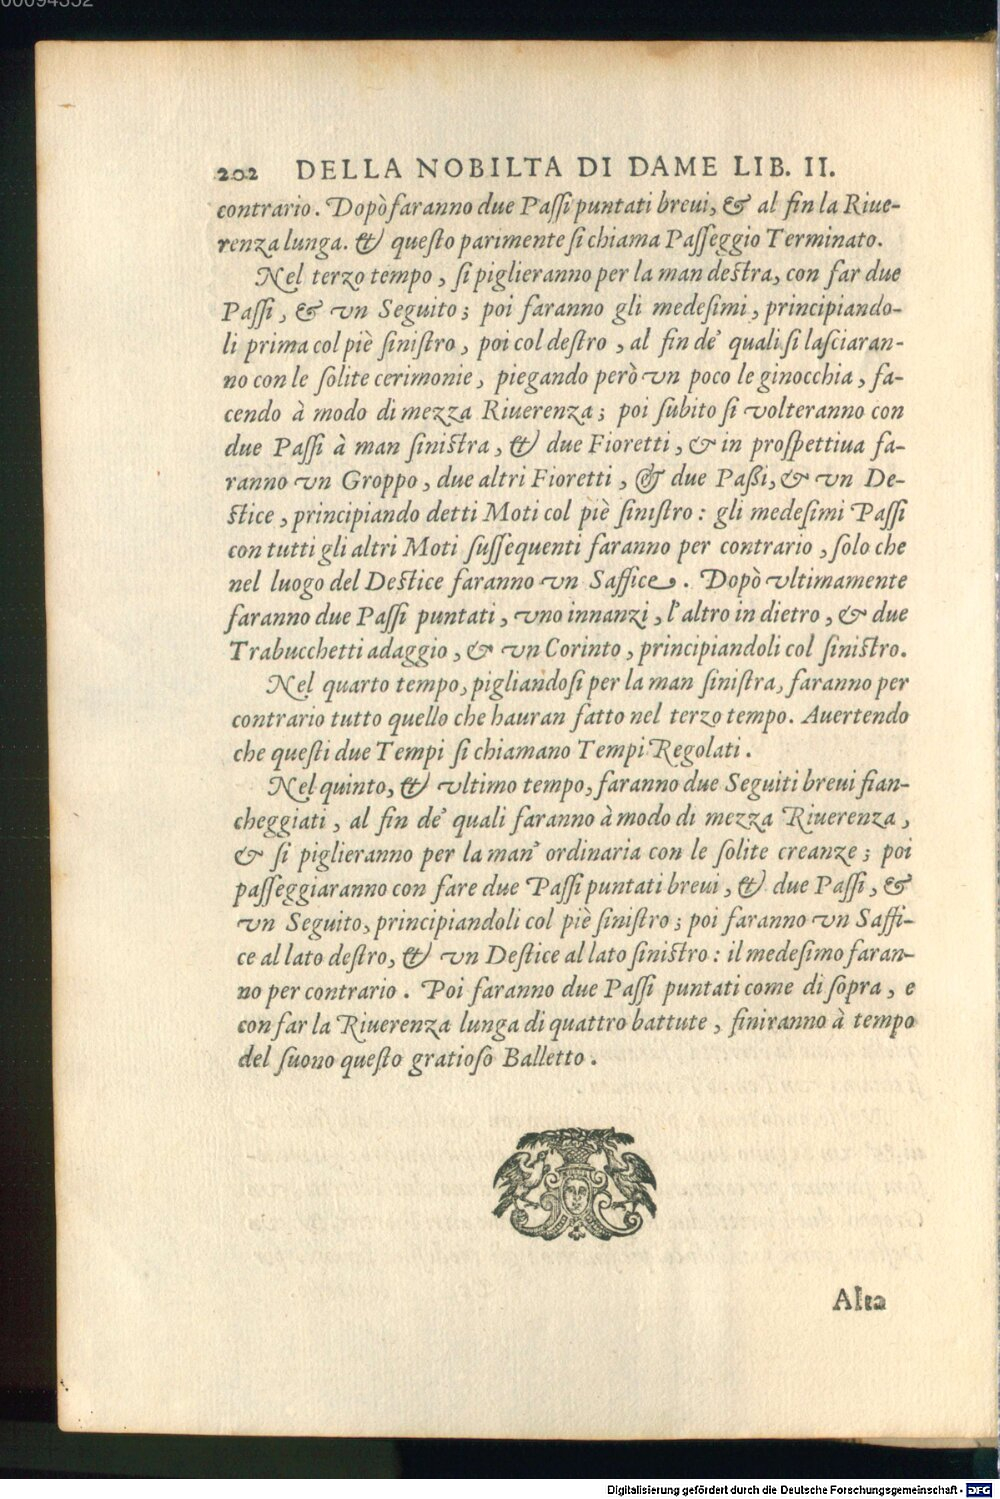 202 DELLA NOBILTA DI DAME LIB. II.
contrario. Dopò faranno due Paſſi puntati breui, & al fin la Riue-
renza lunga. & queſto parimente ſi chiama Paſſeggio Terminato.
Nel terzo tempo, ſi piglieranno per la man deſtra, con far due
Paſſi, & vn Seguito; poi faranno gli medeſimi, principiando-
li prima col piè ſiniſtro, poi col deſtro, al fin de' quali ſi laſciaran-
no con le ſolite cerimonie, piegando però vn poco le ginocchia, fa-
cendo à modo di mezza Riuerenza; poi ſubito ſi volteranno con
due Paſſi à man ſiniſtra, & due Fioretti, & in proſpettiua fa-
ranno vn Groppo, due altri Fioretti, & due Paßi, & vn De-
ſtice, principiando detti Moti col piè ſiniſtro: gli medeſimi Paſſi
con tutti gli altri Moti ſuſſequenti faranno per contrario, ſolo che
nel luogo del Deſtice faranno vn Saffice. Dopò vltimamente
faranno due Paſſi puntati, vno innanzi, l'altro in dietro, & due
Trabucchetti adaggio, & vn Corinto, principiandoli col ſiniſtro.
Nel quarto tempo, pigliandoſi per la man ſiniſtra, faranno per
contrario tutto quello che hauran fatto nel terzo tempo. Auertendo
che queſti due Tempi ſi chiamano Tempi Regolati.
Nel quinto, & vltimo tempo, faranno due Seguiti breui fian-
cheggiati, al fin de' quali faranno à modo di mezza Riuerenza,
& ſi piglieranno per la man' ordinaria con le ſolite creanze; poi
paſſeggiaranno con fare due Paſſi puntati breui, & due Paſſi, &
vn Seguito, principiandoli col piè ſiniſtro; poi faranno vn Saffi-
ce al lato deſtro, & vn Deſtice al lato ſiniſtro: il medeſimo faran-
no per contrario. Poi faranno due Paſſi puntati come di ſopra, e
con far la Riuerenza lunga di quattro battute, finiranno à tempo
del ſuono queſto gratioſo Balletto.
Alta
Digitalisierung gefördert durch die Deutsche Forschungsgemeinschaft - DFG